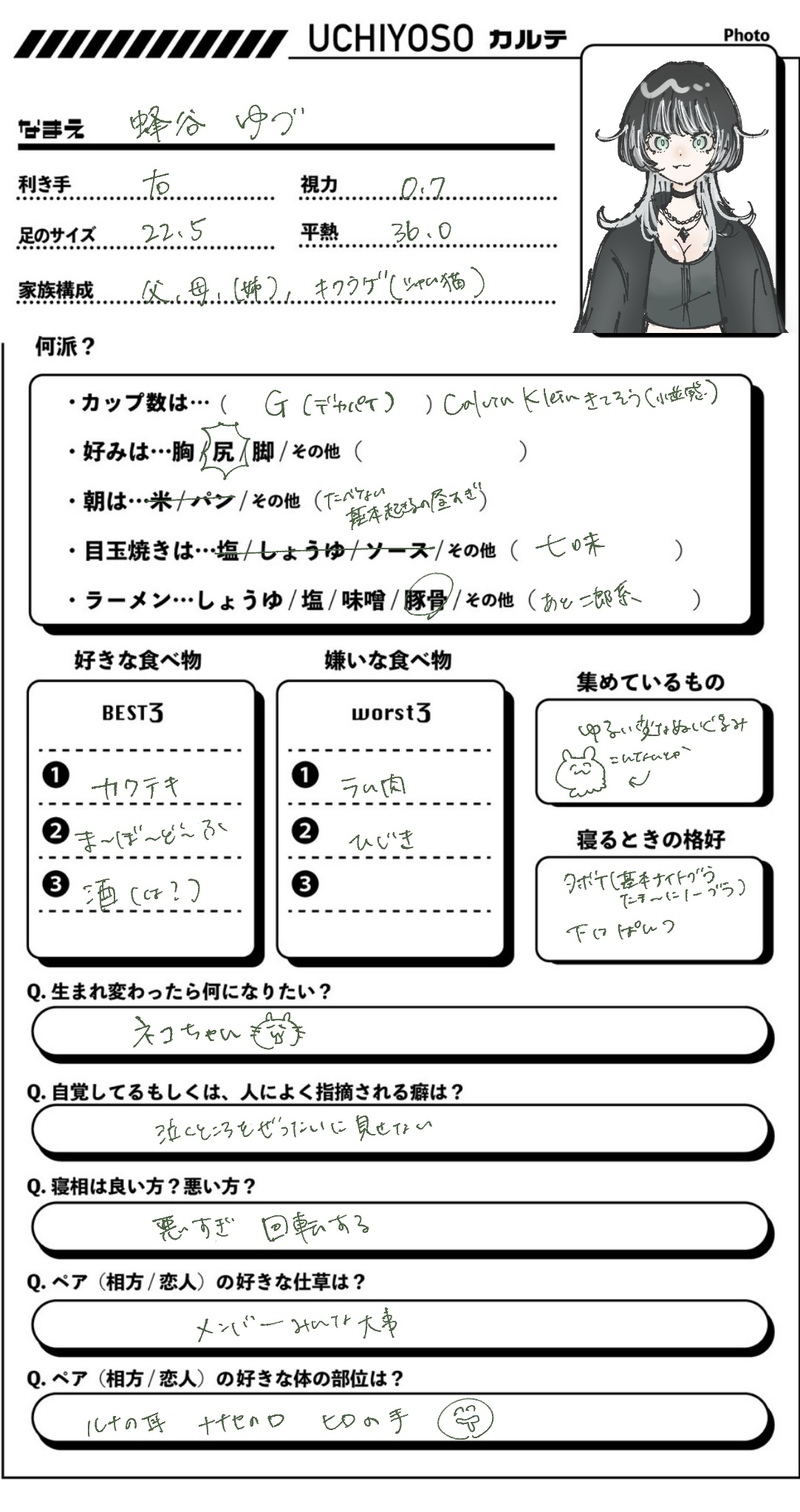 UCHIYOSO カルテ
Photo
なまえ 蜂谷 ゆづ
利き手 右 視力 0.7
足のサイズ 22.5 平熱 36.0
家族構成 父、母、(姉)、キクラゲ(シャム猫)
何派？
・カップ数は…( G (デカパイ) ) Calvin Klein きてそう(小並感)
・好みは…胸/尻/脚/その他( )
・朝は…米/パン/その他(たべない
基本起きるの昼すぎ)
・目玉焼きは…塩/しょうゆ/ソース/その他( 七味 )
・ラーメン…しょうゆ/塩/味噌/豚骨/その他(あと二郎系 )
好きな食べ物
BEST3
1 カクテキ
2 ま〜ぼ〜ど〜ふ
3 酒(は？)
嫌いな食べ物
worst3
1 ラム肉
2 ひじき
3
集めているもの
ゆるい変なぬいぐるみ
こんなんとか
寝るときの格好
タボT(基本ナイトブラ
たま〜にノーブラ)
下は ぱんつ
Q. 生まれ変わったら何になりたい？
ネコちゃん
Q. 自覚してるもしくは、人によく指摘される癖は？
泣くところをぜったいに見せない
Q. 寝相は良い方？悪い方？
悪すぎ 回転する
Q. ペア（相方/恋人）の好きな仕草は？
メンバーみんな大事
Q. ペア（相方/恋人）の好きな体の部位は？
ルナの耳 ナナセの口 ヒロの手